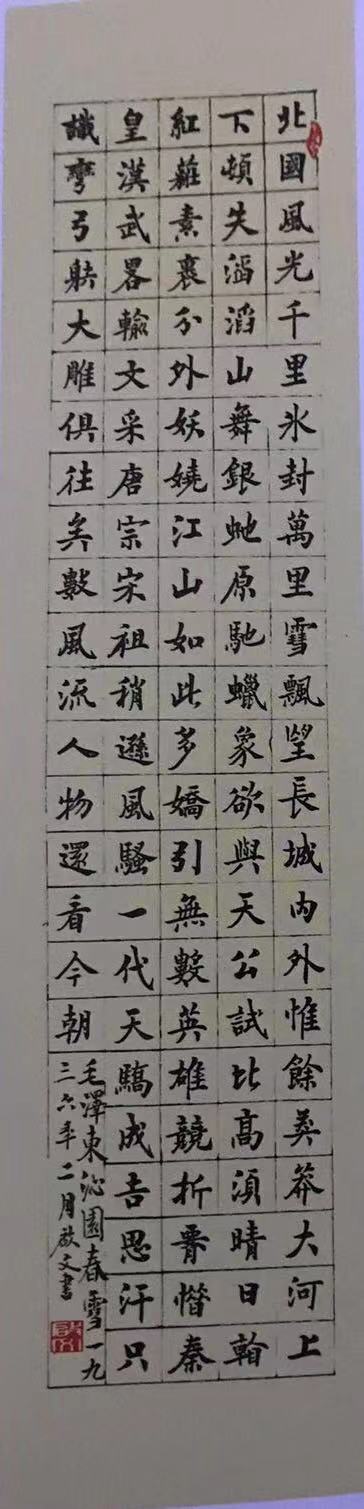 北國風光千里氷封萬里雪飄望長城内外惟餘莽莽大河上
下頓失滔滔山舞銀虵原馳蠟象欲與天公試比高須晴日看
紅素裹分外妖嬈江山如此多嬌引無數英雄競折腰惜秦
皇漢武畧輸文采唐宗宋祖稍遜風騷一代天驕成吉思汗只
識彎弓射大雕俱往矣數風流人物還看今朝
毛澤東沁園春雪一九
三六年二月啟文書